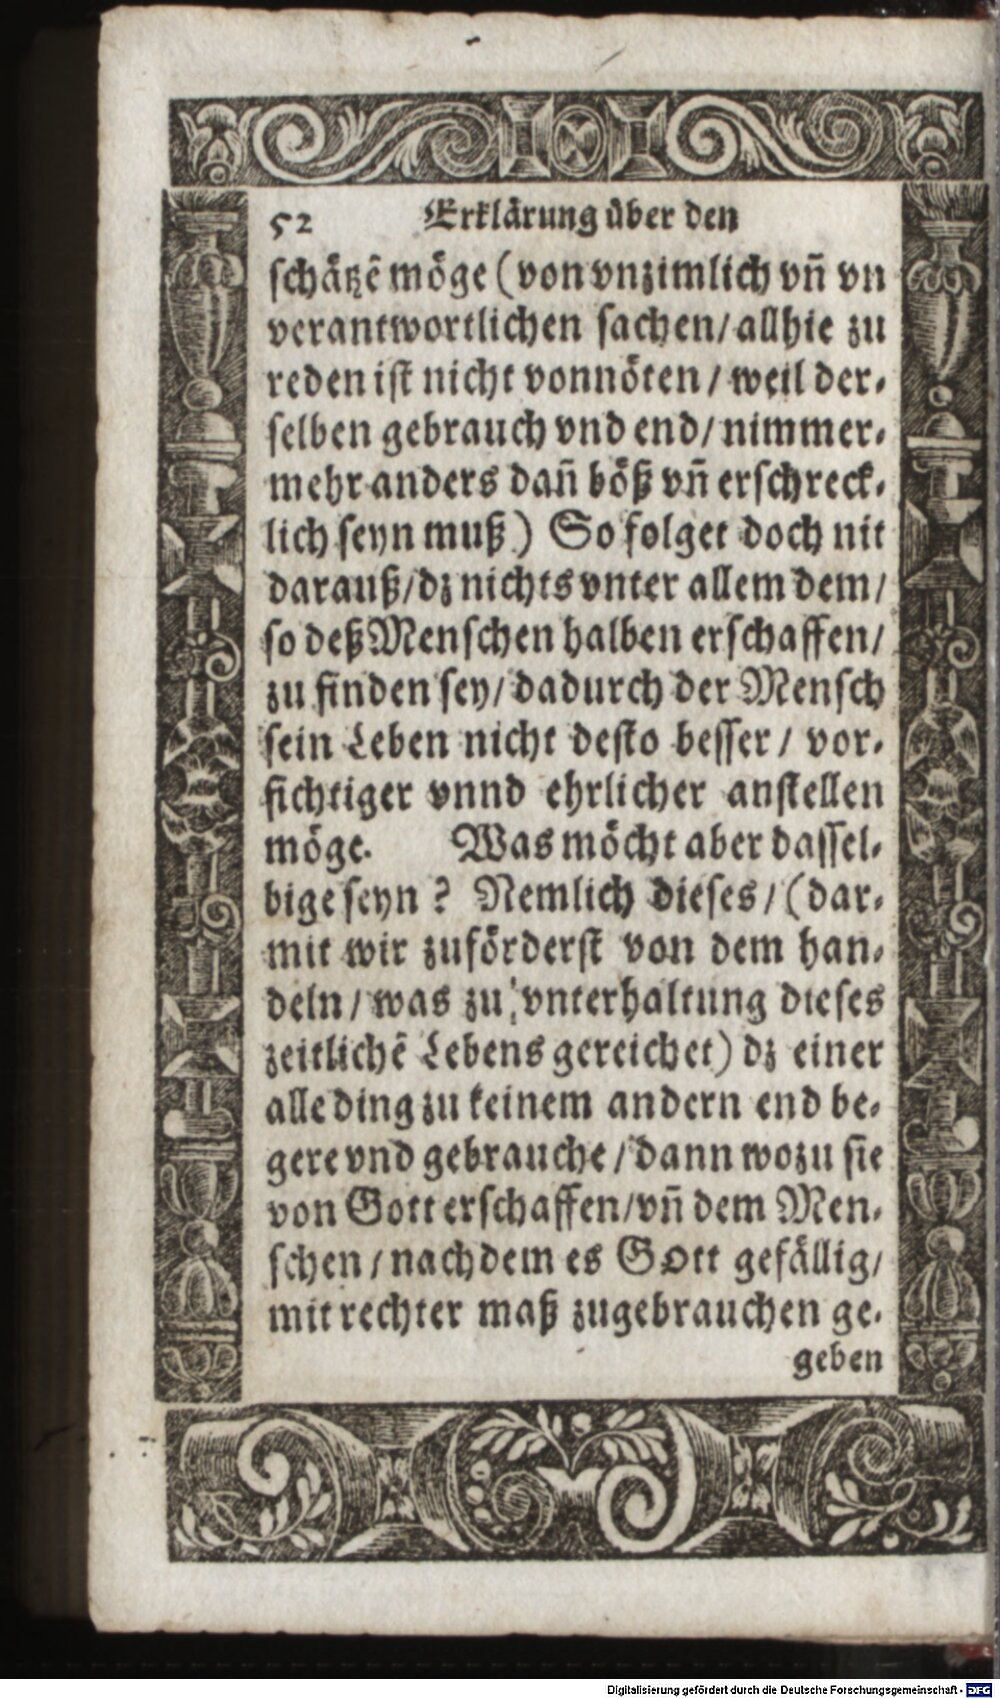 52 Erklärung über den
schätzē möge (von vnzimlich vn̄ vn
verantwortlichen sachen/ allhie zu
reden ist nicht vonnöten / weil der-
selben gebrauch vnd end/ nimmer-
mehr anders dan̄ böß vn̄ erschreck-
lich seyn muß) So folget doch nit
darauß/ dz nichts vnter allem dem/
so deß Menschen halben erschaffen/
zu finden sey/ dadurch der Mensch
sein Leben nicht desto besser / vor-
sichtiger vnnd ehrlicher anstellen
möge. Was möcht aber dassel-
bige seyn ? Nemlich dieses / (dar-
mit wir zuförderst von dem han-
deln / was zu vnterhaltung dieses
zeitlichē Lebens gereichet) dz einer
alle ding zu keinem andern end be-
gere vnd gebrauche / dann wozu sie
von Gott erschaffen/ vn̄ dem Men-
schen / nach dem es GOtt gefällig/
mit rechter maß zugebrauchen ge-
geben
Digitalisierung gefördert durch die Deutsche Forschungsgemeinschaft - DFG